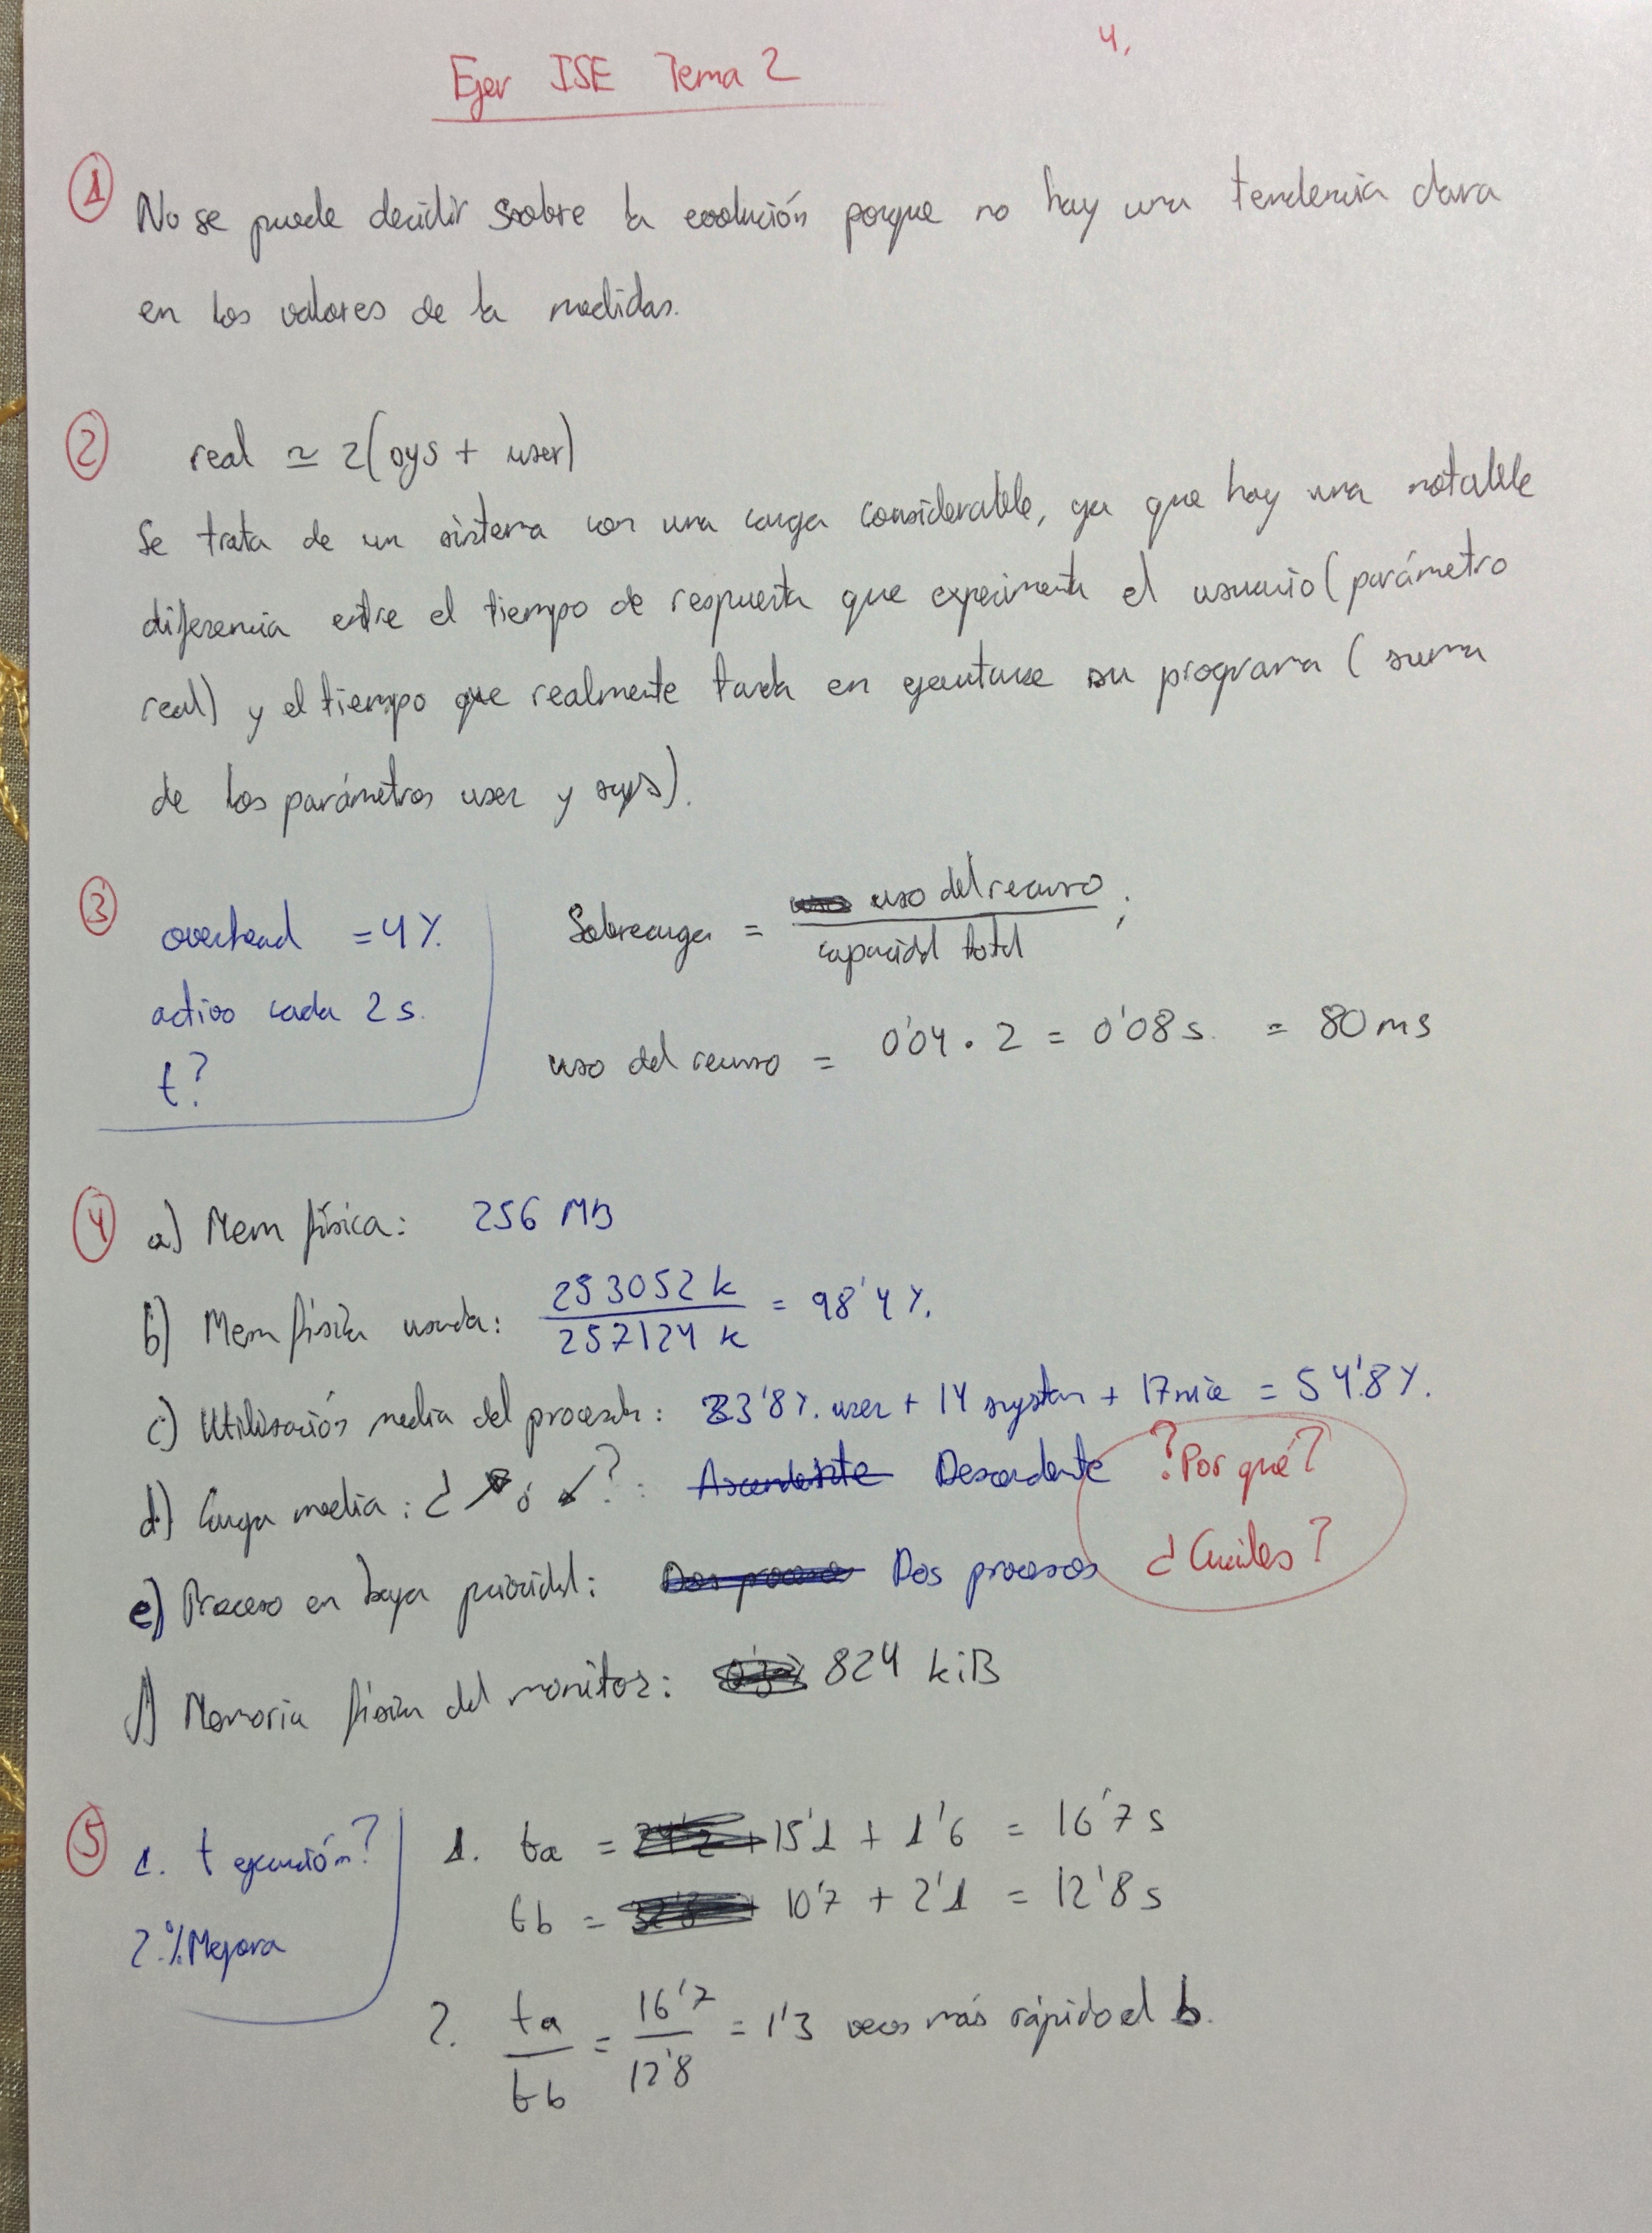 Ejer ISE Tema 2
4,
1 No se puede decidir sobre la evolución porque no hay una tendencia clara
en los valores de la medidas.
2 real ≃ 2(sys + user)
Se trata de un sistema con una carga considerable, ya que hay una notable
diferencia entre el tiempo de respuesta que experimenta el usuario (parámetro
real) y el tiempo que realmente tarda en ejecutarse su programa (suma
de los parámetros user y sys).
3 overhead = 4%.
activo cada 2 s.
t?
Sobrecarga = uso del recurso / capacidad total ;
uso del recurso = 0'04 · 2 = 0'08 s. = 80 ms
4 a) Mem física: 256 MB
b) Mem física usada: 253052 k / 257124 k = 98'4 %.
c) Utilización media del procesador: 23'8%. user + 14 system + 17 nice = 54'8%.
d) Carga media: ¿ ↗ ó ↙ ?: Ascendente Descendente ?Por qué?
e) Proceso en baja prioridad: Dos procesos Dos procesos ¿Cuáles?
f) Memoria física del monitor: 824 kiB
5 1. t ejecución?
2. % Mejora
1. ta = 15'1 + 1'6 = 16'7 s
tb = 10'7 + 2'1 = 12'8 s
2. ta / tb = 16'7 / 12'8 = 1'3 veces más rápido el b.